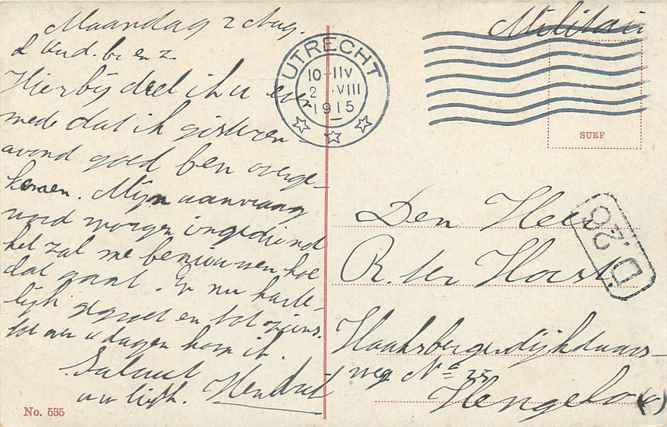 Maandag 2 Aug.
Hierbij deel ik u even
mede dat ik gisteren
avond goed ben overge-
komen. Mijn aanvraag
word morgen ingediend
het zal me benieuwen hoe
dat gaat. En nu harte-
lijk gegroet en tot ziens.
dagen hoop ik.
Saluut
Hendrik
No. 535
UTRECHT
10-11V
2 .VIII
1915
Militair
SUEF
D.28
Den Heer
R. ter Horst
Haaksbergerdijkdwars-
weg No 25
Hengelo (O)